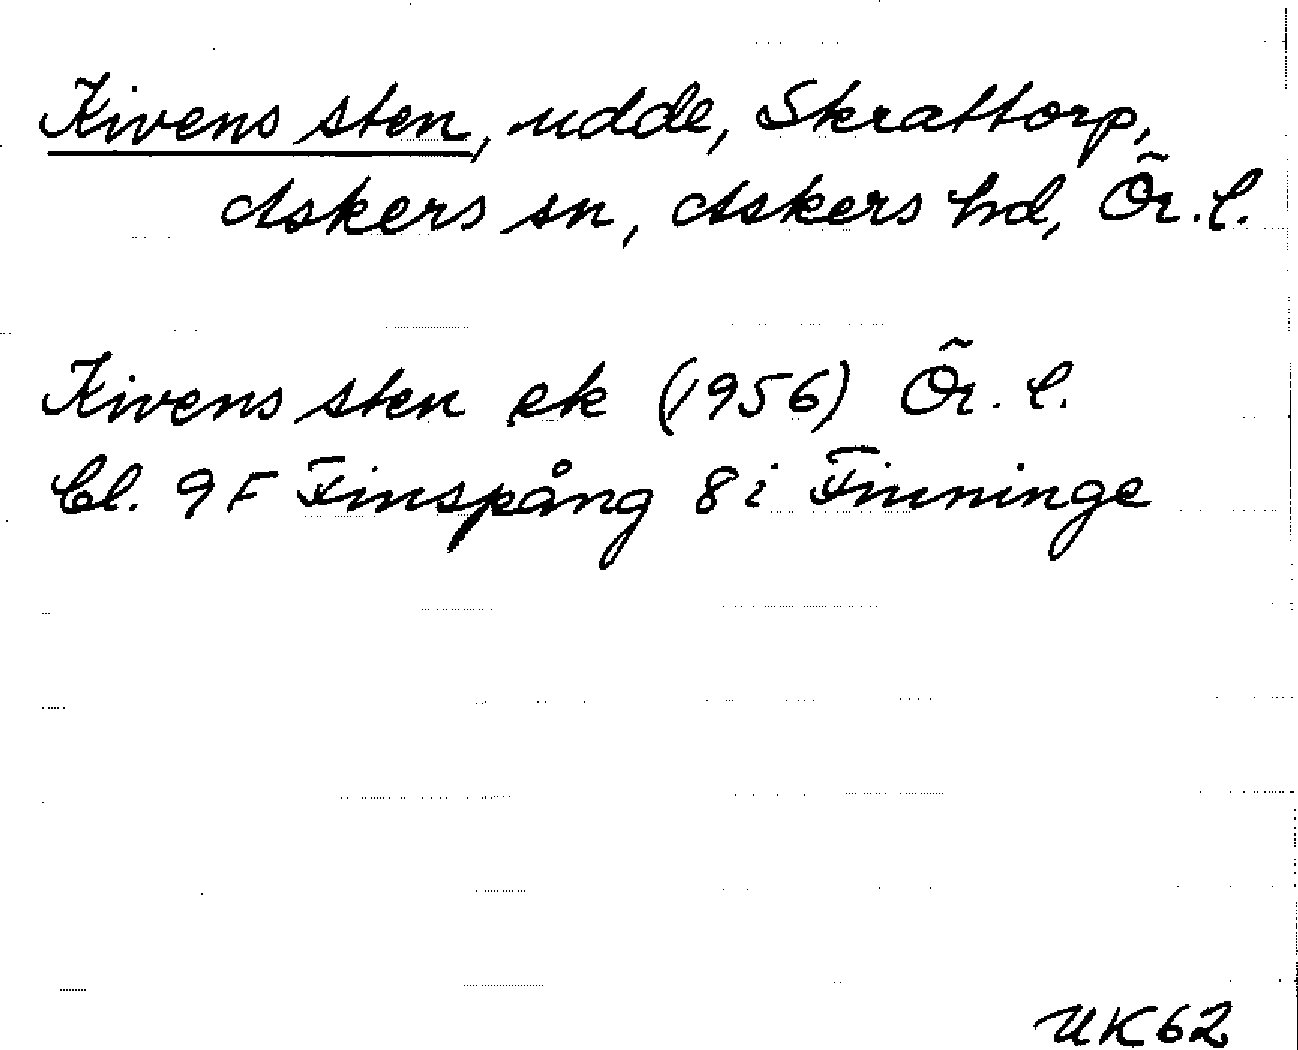 Kivens sten, udde, Skrattorp,
Askers sn, Askers hd, Ör. l.
Kivens sten ek (1956) Ör. l.
Bl. 9F Finspång 8i Finninge
UK62